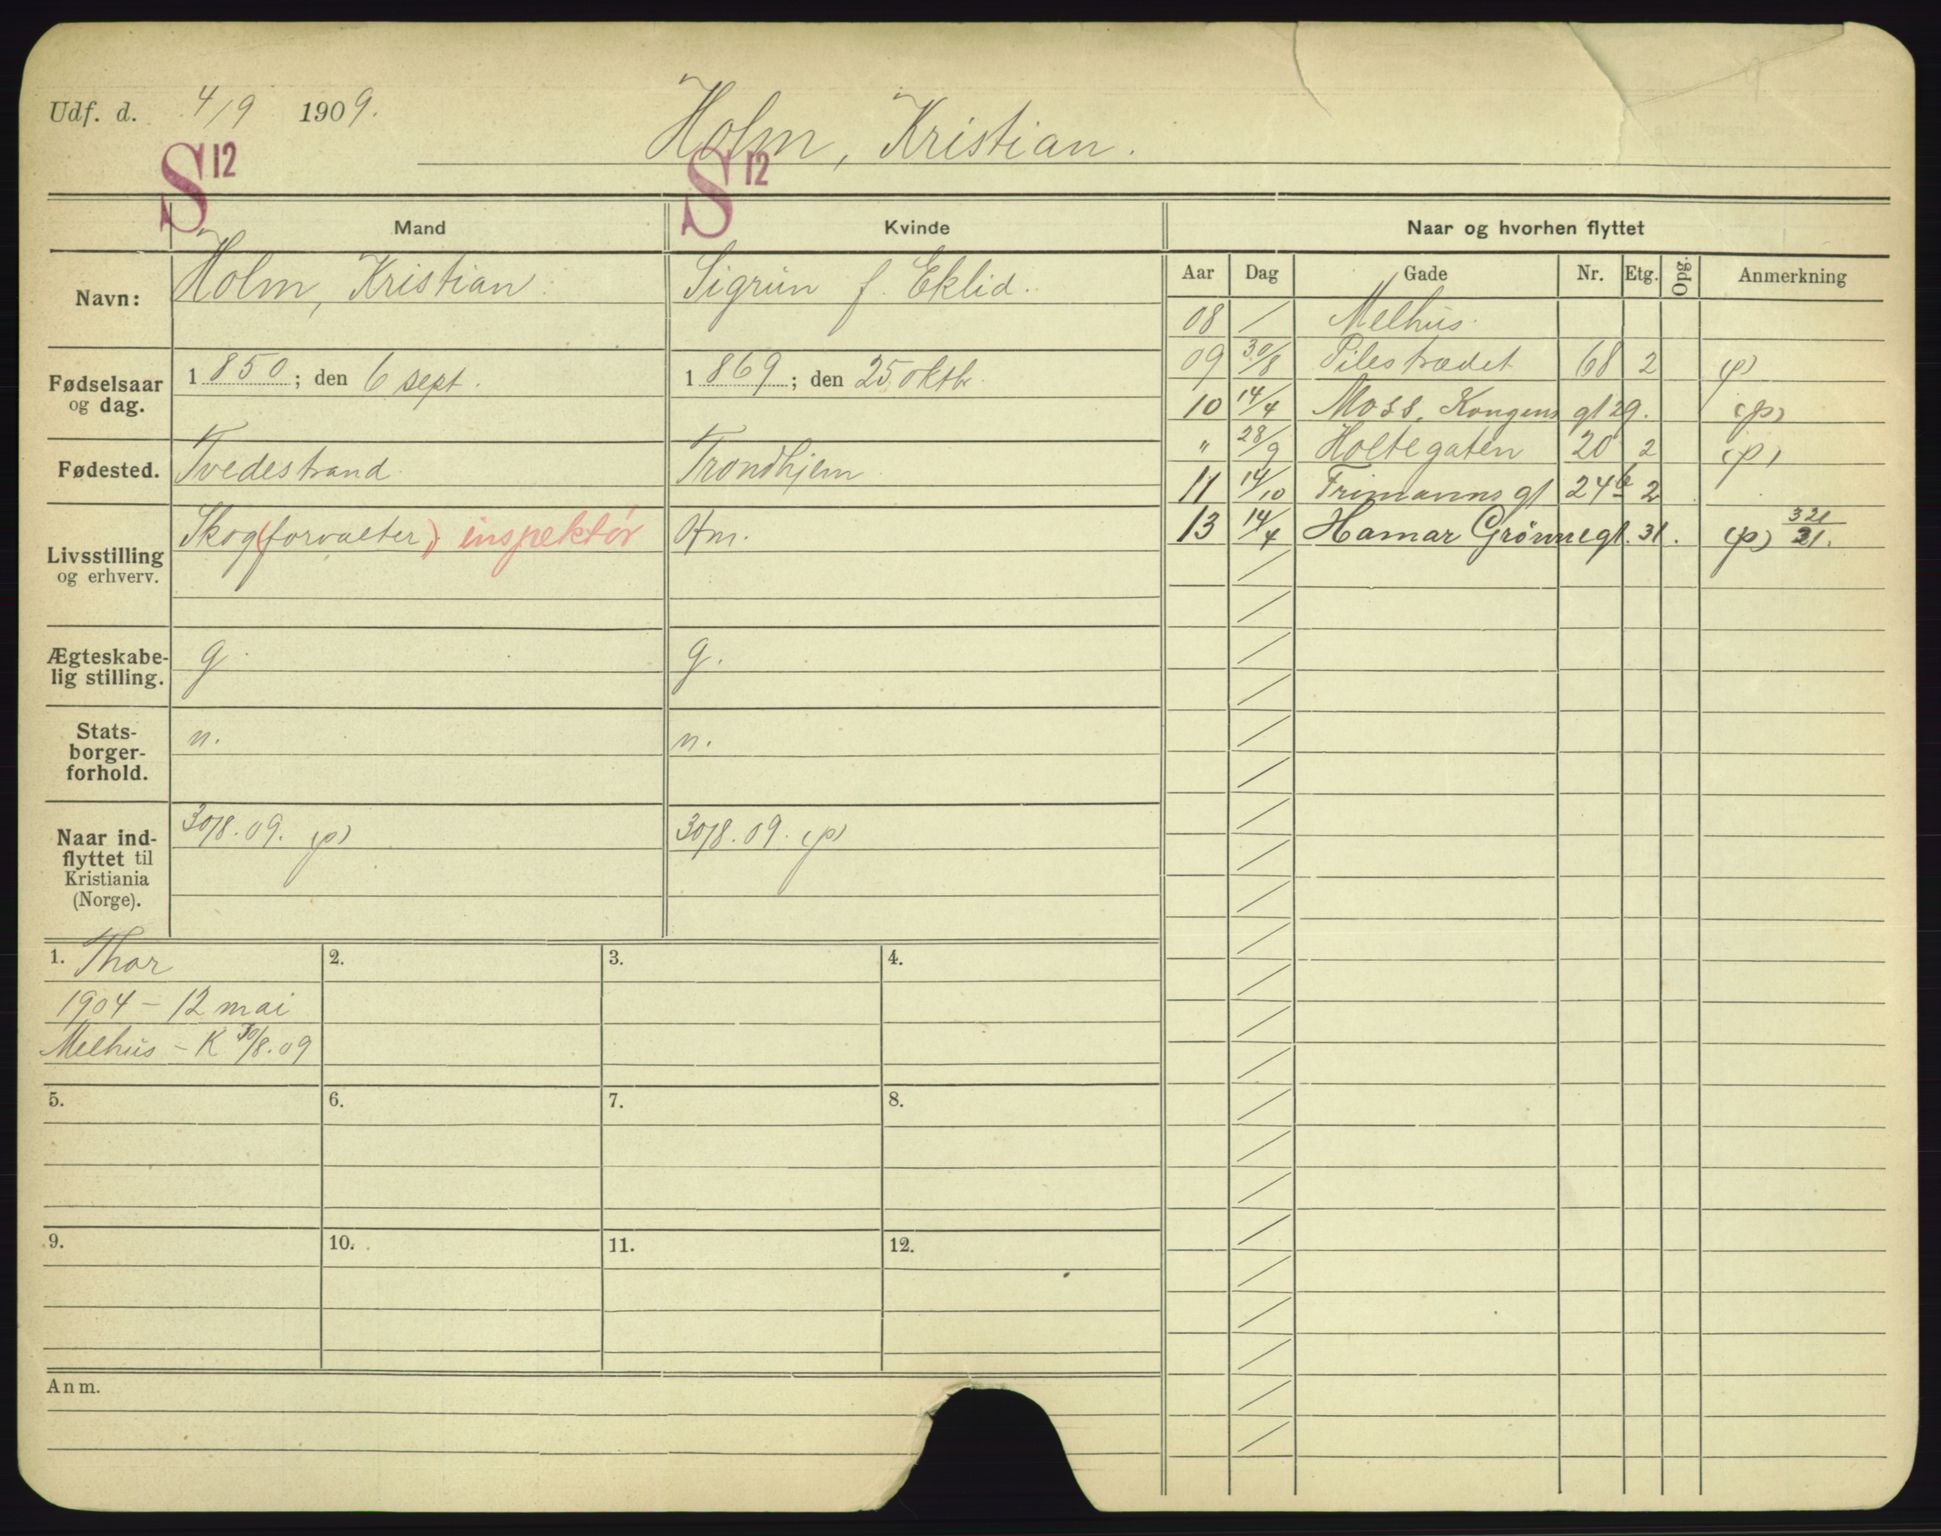 Udf. d. 4/9 1909.
Holm, Kristian.
S 12 S 12
Mand Kvinde Naar og hvorhen flyttet
Navn: Holm, Kristian Sigrun f. Eklid.
Fødselsaar og dag. 1850; den 6 sept. 1869; den 25 oktb.
Fødested. Tvedestrand Trondhjem
Livsstilling og erhverv. Skog(forvalter) inspektør Hm.
Ægteskabe-
lig stilling. g. g.
Stats-
borger-
forhold. n. n.
Naar ind-
flyttet til
Kristiania
(Norge). 30/8.09. (p) 30/8.09. (p)
Aar Dag Gade Nr. Etg. Opg. Anmerkning
08 / Melhus.
09 30/8 Pilestrædet 68 2 (p)
10 14/4 Moss, Kongens gt 29. (p)
" 28/9 Holtegaten 20 2 (p)
11 14/10 Frimanns gt 24b 2
13 14/4 Hamar Grønnegt. 31. (p) 321/21.
1. Thor
1904 - 12 mai
Melhus - K 30/8.09
2.
3.
4.
5.
6.
7.
8.
9.
10.
11.
12.
Anm.